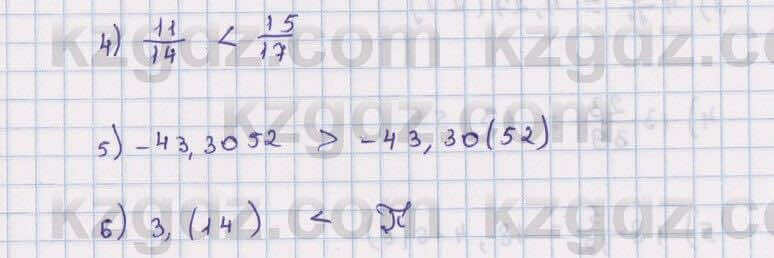 kzgdz.com kzgdz.com
4) 11/14 < 15/17
kzgdz.com
5) -43,3052 > -43,30(52)
6) 3,(14) < π
kzgdz.com kzgdz.com